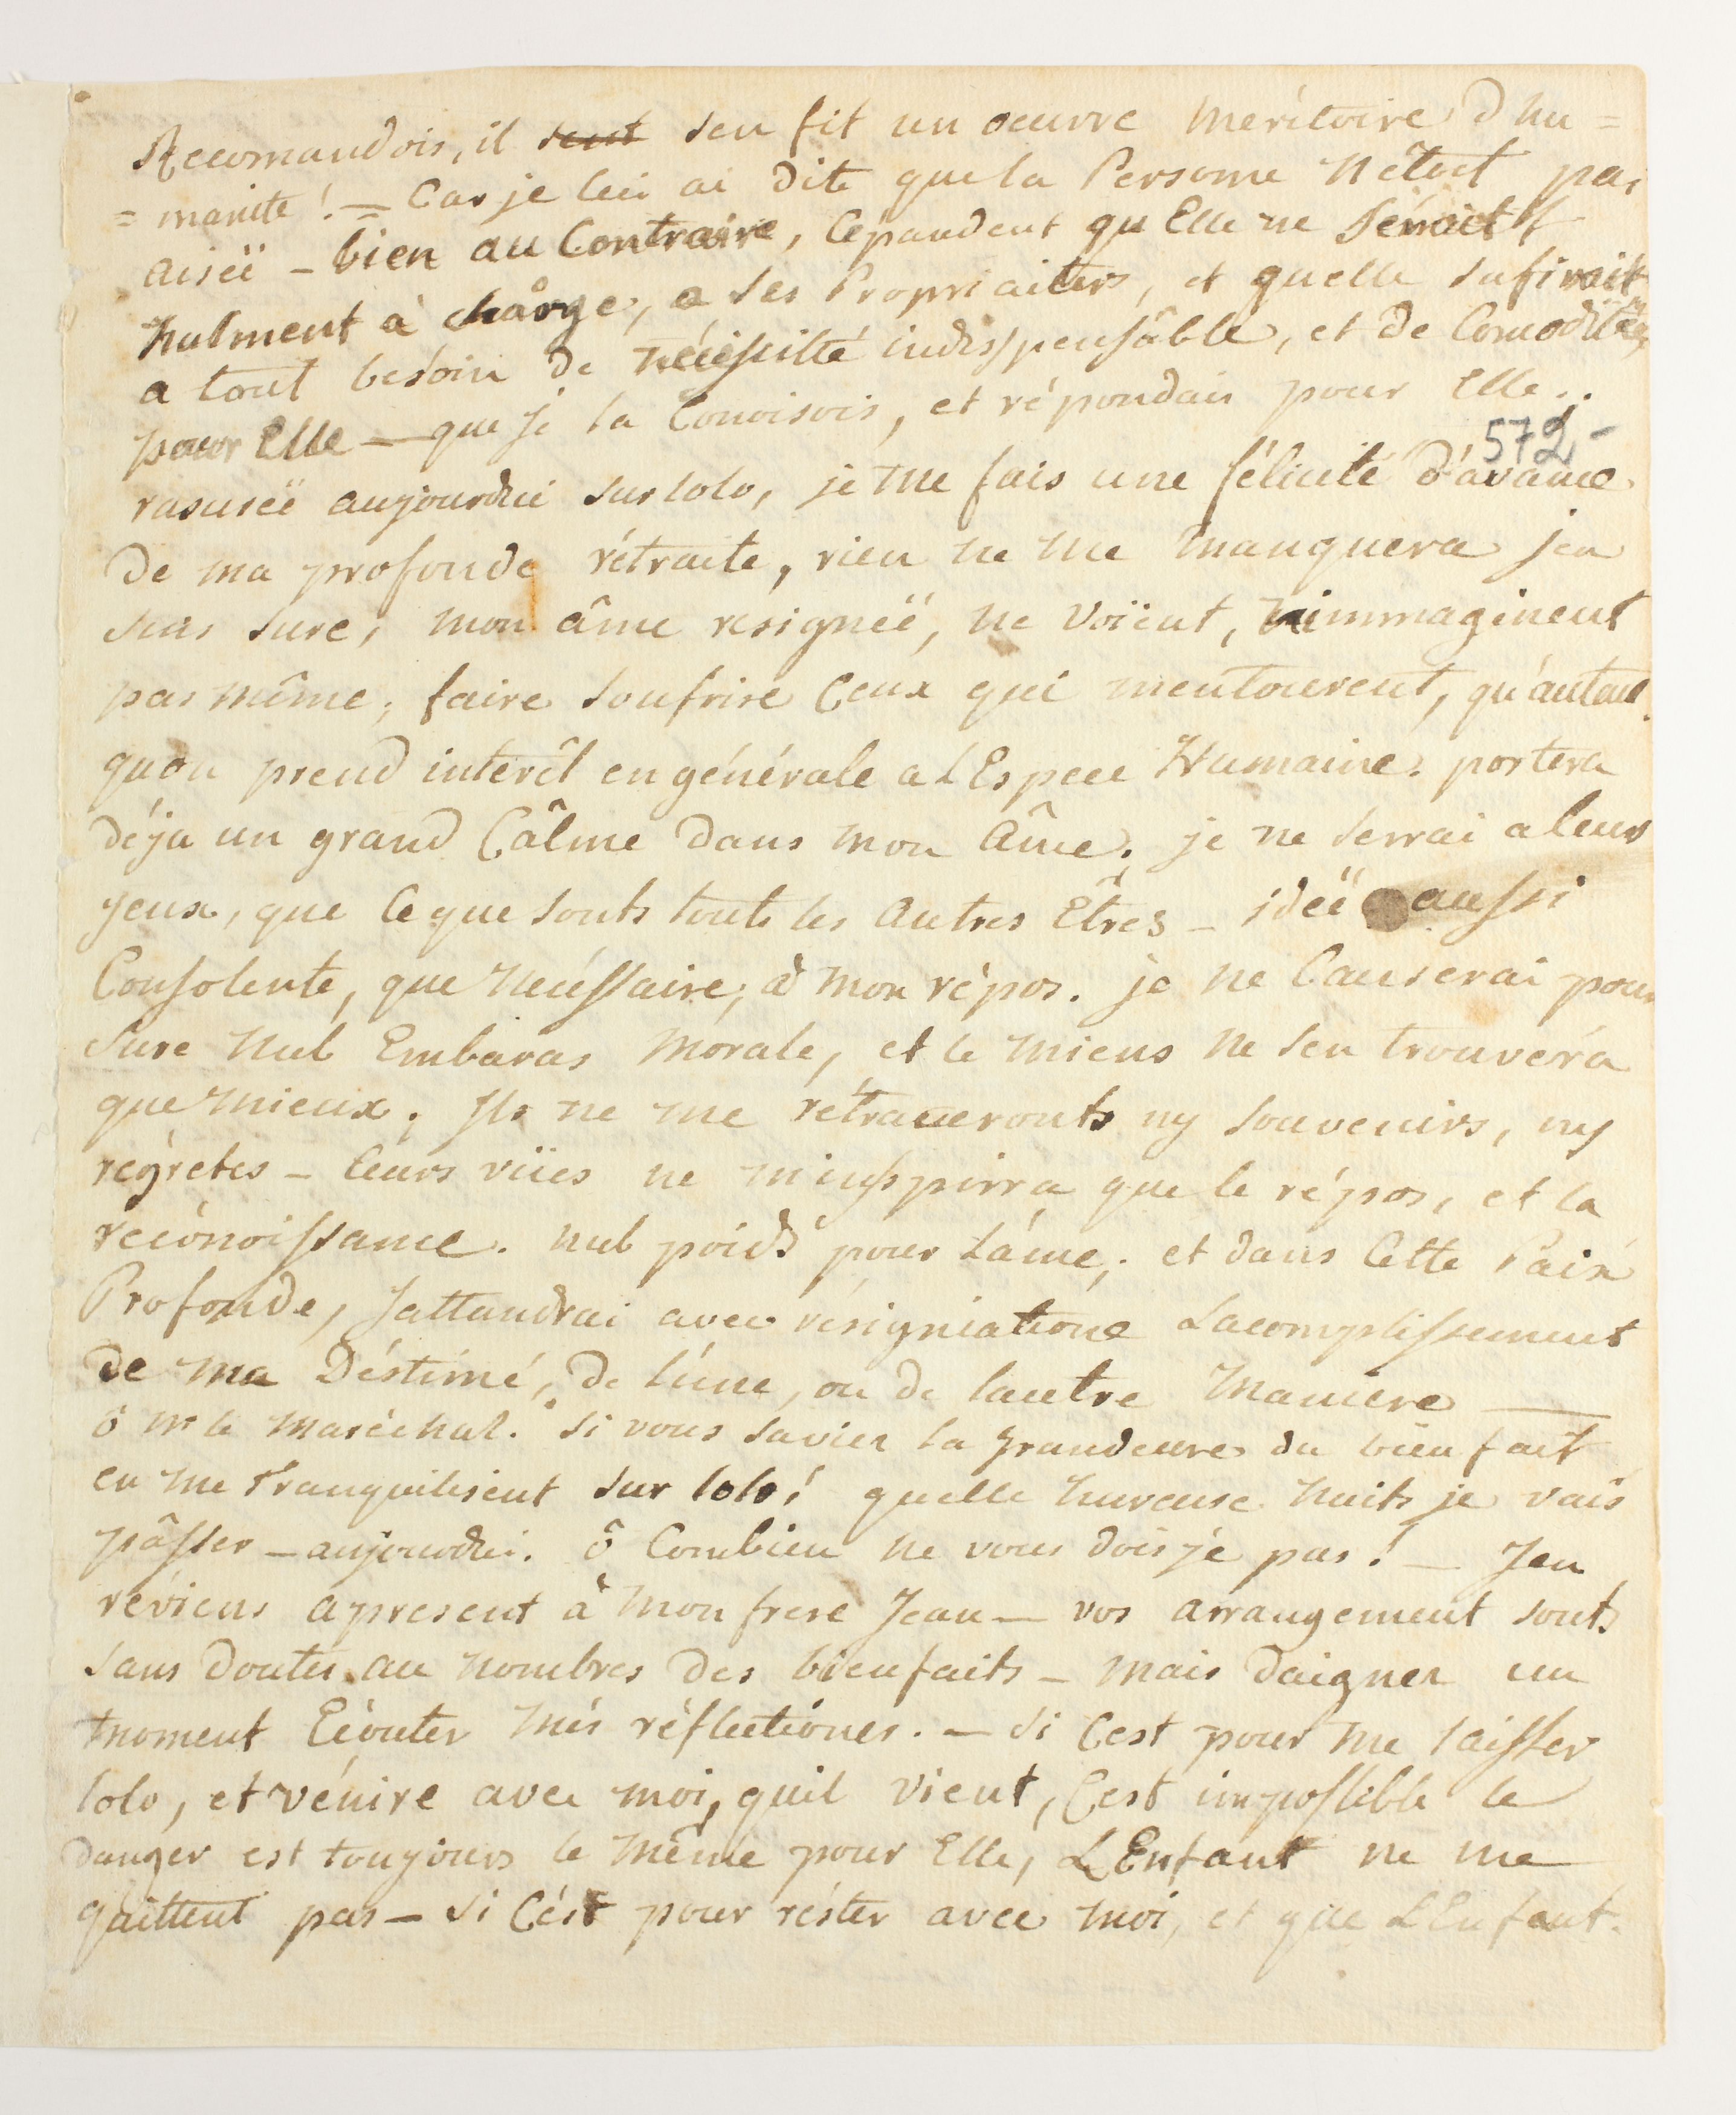 Recomandois, il sent sen fit un oeuvre meritoire d'hu=
=manite! = Car je lui ai dite que la Persone n'étoit pas
aiseë - bien au Contraire, Cépandent qu Elle ne séroit
nulment à charge, a ses Propriaiters, et quelle sufirait
a tout bésoin de nécéssitté indisspensâble, et de Comoditée,
pour Elle - que je la Conoisois, et répondais pour Elle..
572-
rasureë aujourdui sur lolo, je me fais une félicité d'avance
de ma profonde rétraite, rien ne me manquera jen
suis sure, mon âme resigneë, ne voient, nimmaginent
pas même, faire soufrire Ceux qui mentourent, qu'autant
quon prend interêt en générale a L Espece Humaine. portera
déja un grand Câlme dans mon âme, je ne serrai a leurs
yeux, que Ce que sonts touts les autres Etres - ideë aussi
Consolente, que nécéssaire, à mon répos. je ne Causerai pour
sure nul Embaras morale, et le miens ne sen trouvera
que mieux. Ils ne me rétraceronts ny souvenirs, ny
régretes - leurs vües ne m'insspirra que le répos, et la
reconoissance. nul poids pour l'âme, et dans Cette Paix
Profonde, jattandrai avec résigniatione Lacomplissement
de ma Déstiné, de l'une, ou de lautre maniere —
ô Mr le Maréchal. si vous saviez la grandeure du bienfait
en me tranquilisent sur lolo! quelle hureuse nuits je vais
pâsser - aujourdui. ô Combien ne vous dois je pas! - Jen
réviens apresent à mon frere Jean - vos arrangement sonts
sans doutes au nombres des bienfaits - mais daignez un
moment Ecouter més réflectiones. - si Cest pour me laisser
lolo, et vénire avec moi, quil vient, Cest impossible le
danger est toujours le même pour Elle, L Enfant ne me
quittent pas - si Cést pour réster avec moi, et que L Enfant.